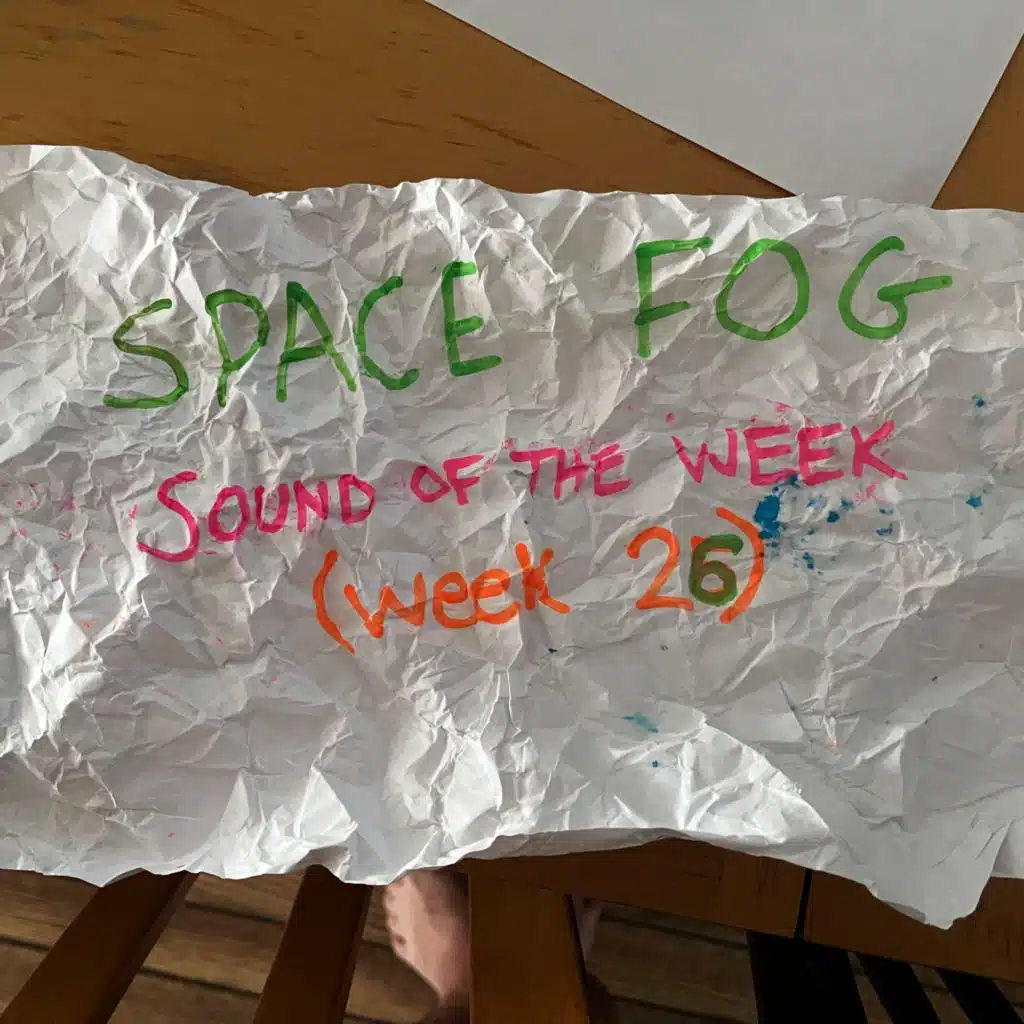 SPACE FOG
SOUND OF THE WEEK
(week 26)